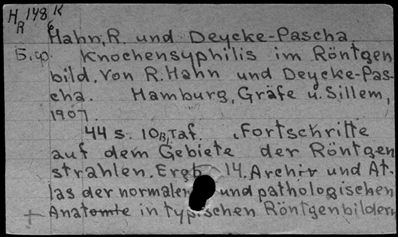 H 148 K
R
Hahn, R. und Deycke-Pascha.
Knochensyphilis im Röntgen
bild. Von R. Hahn und Deycke-Pas-
cha. Hamburg, Gräfe u. Sillem,
1907.
44 s. 10 B, Taf. Fortschritte
auf dem Gebiete der Röntgen
strahlen. Erg. 14. Archiv und At-
las der normalen und pathologischen
Anatomie in typischen Röntgenbildern